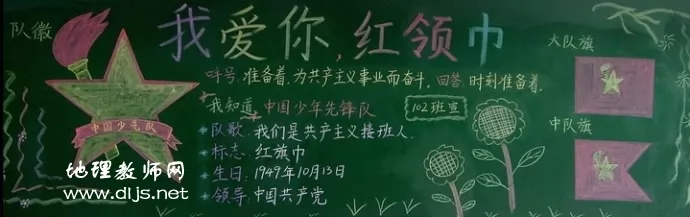 队徽
我爱你,红领巾
大队旗
呼号:准备着,为共产主义事业而奋斗,回答:时刻准备着.
我知道:中国少年先锋队
102班宣
中国少先队
队歌:我们是共产主义接班人.
中队旗
标志:红旗巾
生日:1949年10月13日
领导:中国共产党
地理教师网
www.dljs.net